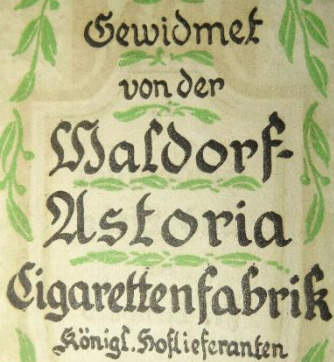 Gewidmet
von der
Waldorf-
Astoria
Cigarettenfabrik
Königl. Hoflieferanten